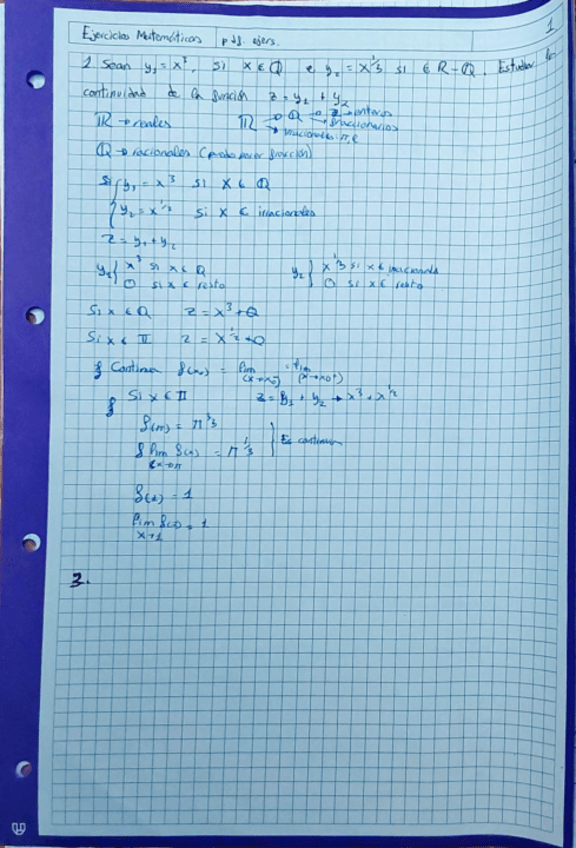 1
Ejercicios Matemáticos pdf. ejers.
2 Sean y₁ = x³, si x ∈ Q e y₂ = x^1/3 si ∈ R - Q. Estudiar la
continuidad de la función z = y₁ + y₂
R → reales R → Q → Z → enteros
→ fraccionarios
→ irracionales: π, e
Q → racionales (fracción)
Si { y₁ = x³ si x ∈ Q
y₂ = x^1/2 si x ∈ irracionales
z = y₁ + y₂
y₁ { x³ si x ∈ Q y₂ { x^1/3 si x ∈ irracionales
0 si x ∈ resto 0 si x ∈ resto
Si x ∈ Q z = x³ + 0
Si x ∈ II z = x^1/2 + 0
f Continua f(x₀) = lim (x→x₀⁻) = lim (x→x₀⁺)
Si x ∈ II z = y₁ + y₂ → x³ + x^1/2
f(π) = π^1/3
lim f(x) = π^1/3 } Es continua
x→π
f(1) = 1
lim f(x) = 1
x→1
3.